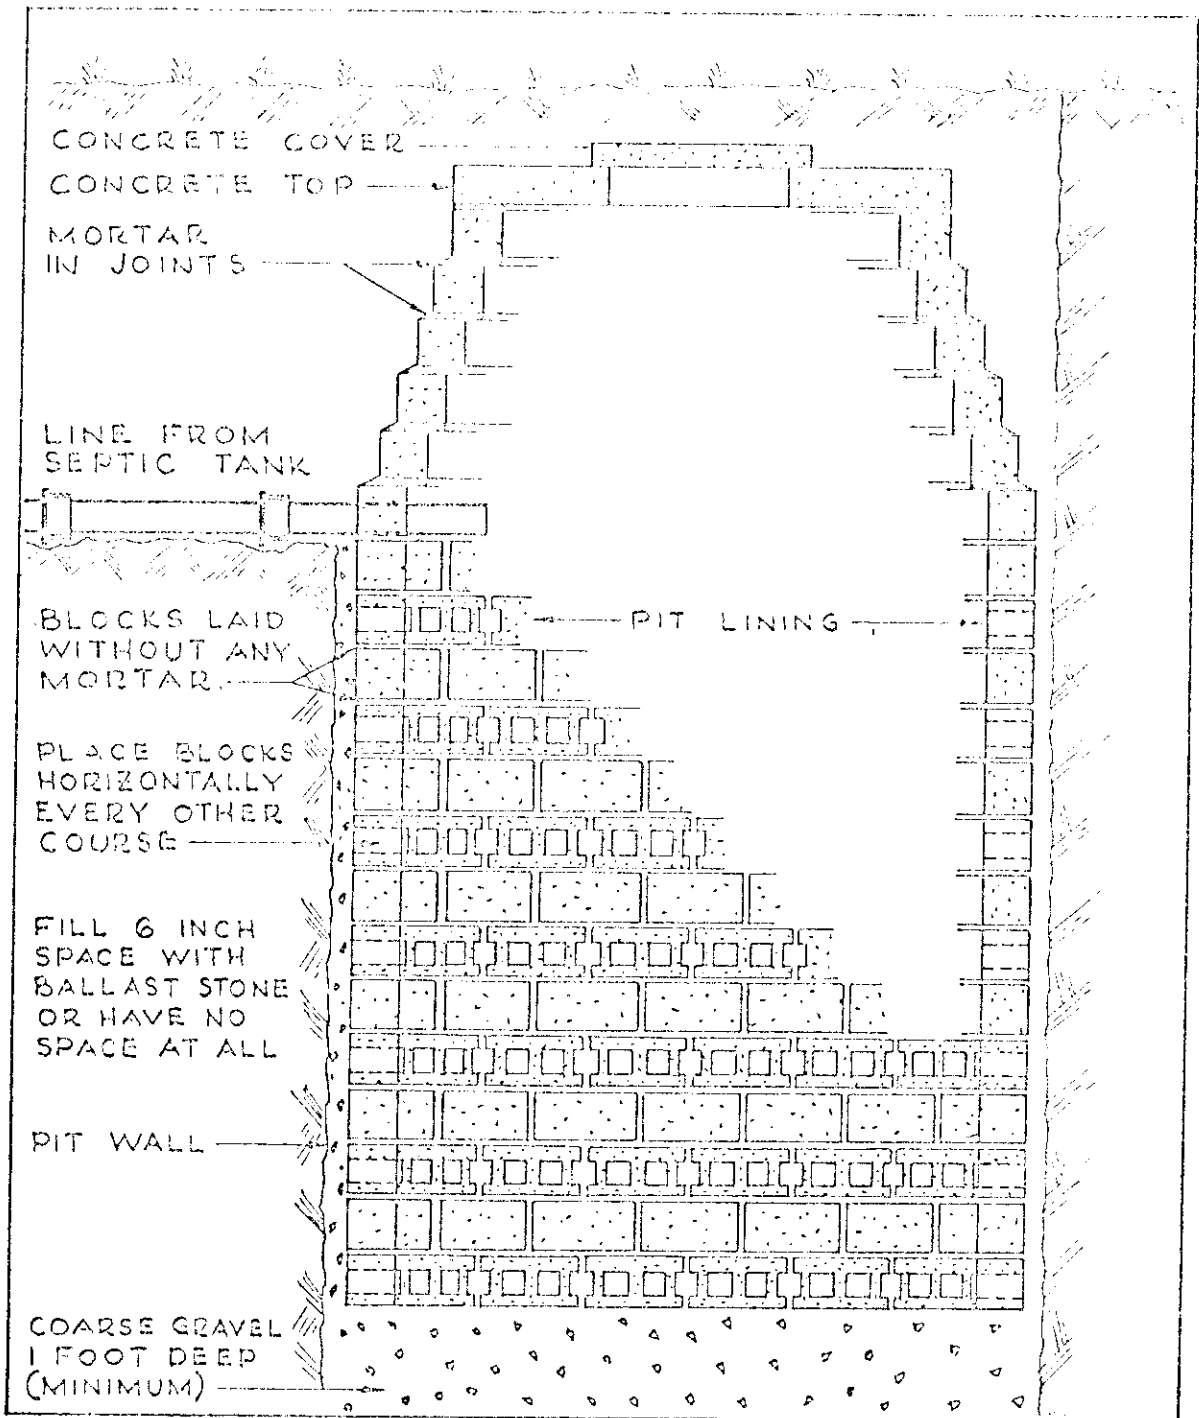 CONCRETE COVER
CONCRETE TOP
MORTAR
IN JOINTS
LINE FROM
SEPTIC TANK
BLOCKS LAID
WITHOUT ANY
MORTAR
PIT LINING
PLACE BLOCKS
HORIZONTALLY
EVERY OTHER
COURSE
FILL 6 INCH
SPACE WITH
BALLAST STONE
OR HAVE NO
SPACE AT ALL
PIT WALL
COARSE GRAVEL
1 FOOT DEEP
(MINIMUM)